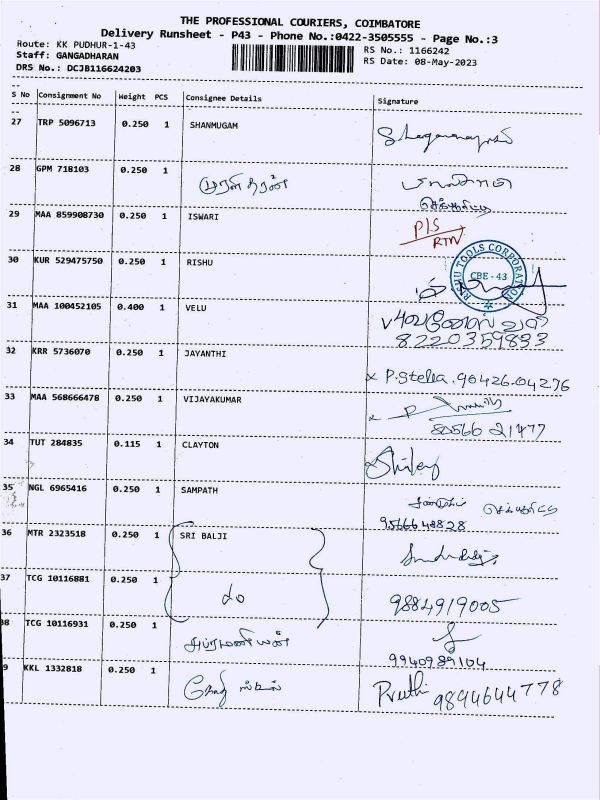 THE PROFESSIONAL COURIERS, COIMBATORE
Delivery Runsheet - P43 - Phone No.:0422-3505555 - Page No.:3
Route: KK PUDHUR-1-43 RS No.: 1166242
Staff: GANGADHARAN RS Date: 08-May-2023
DRS No.: DCJB116624203
S No Consignment No Weight PCS Consignee Details Signature
27 TRP 5096713 0.250 1 SHANMUGAM
28 GPM 718103 0.250 1
முரளிதரன்
29 MAA 859908730 0.250 1 ISWARI P/S
RTN
30 KUR 529475750 0.250 1 RISHU
RISHU TOOLS CORPORATION
CBE - 43
31 MAA 100452105 0.400 1 VELU
8220359833
32 KRR 5736070 0.250 1 JAYANTHI
x P.Stella.90426.04276
33 MAA 568666478 0.250 1 VIJAYAKUMAR
x P
80566 21477
34 TUT 284835 0.115 1 CLAYTON
Shirley
35 NGL 6965416 0.250 1 SAMPATH
9566648828
36 MTR 2323518 0.250 1 SRI BALJI
37 TCG 10116881 0.250 1
do 9884919005
38 TCG 10116931 0.250 1
சுப்ரமணியன் 9940989104
9 KKL 1332818 0.250 1
Preethi 9894644778